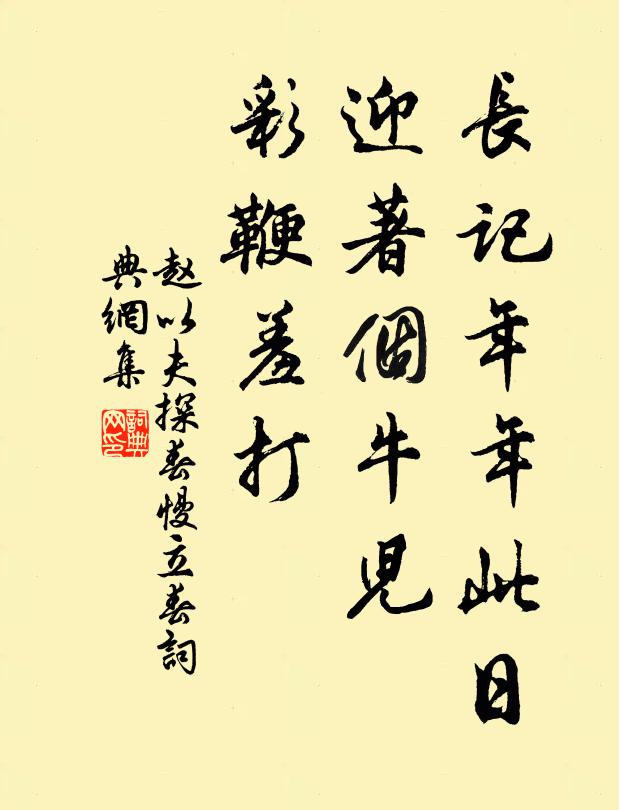 長記年年此日
迎著個牛兒
彩鞭羞打
赵以夫探春慢立春詞
典網集
詞典網印